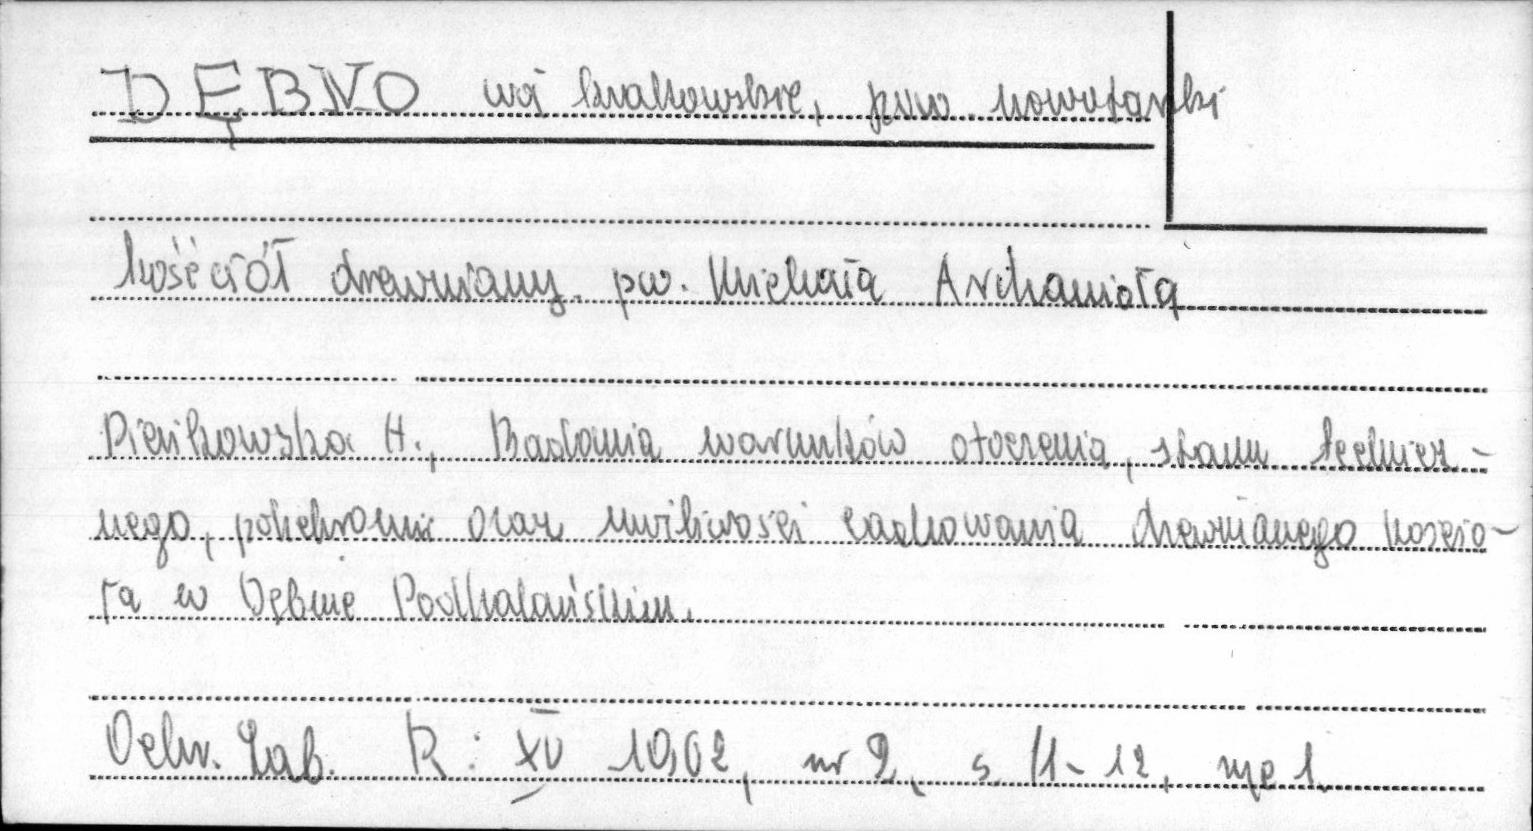 DĘBNO woj krakowskie, pow. nowotarski
kościół drewniany. pw. Michała Archanioła
Pieńkowska H., Badania warunków otoczenia, stanu technicz-
nego, polichromii oraz możliwości zachowania drewnianego koscio-
ła w Dębnie Podhalańskim.
Ochr. Zab. R: XV 1962, nr 2, s 11-12, ryc 1.